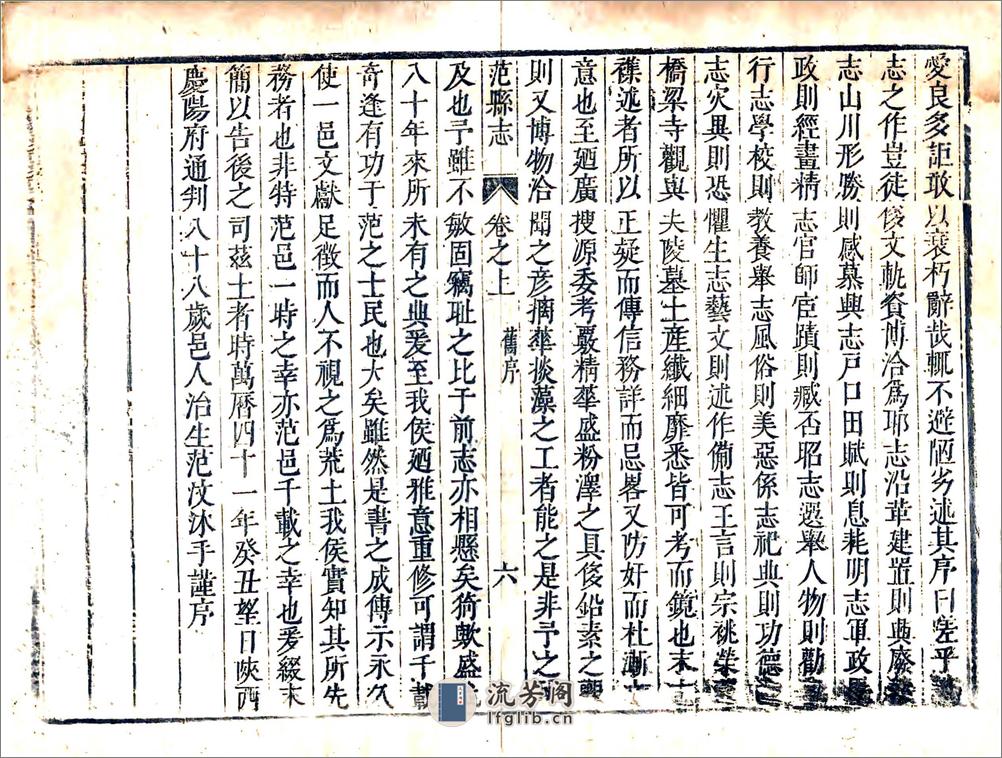 愛良多詎敢以衰朽辭哉輒不避陋劣述其序曰嗟乎
志之作豈徒侈文軌資博洽爲耶志沿革建置則典廢
志山川形勝則感慕興志戸口田賦則息耗明志軍政
政則經畫精志官師宦蹟則臧否昭志選舉人物則勸
行志學校則教養舉志風俗則美惡係志祀典則功德
志灾異則恐懼生志藝文則述作備志王言則宗祧榮
橋梁寺觀與夫陵墓土産纖細靡悉皆可考而鏡也末
襍述者所以正疑而傳信務詳而忌畧又防奸而杜漸
意也至廼廣搜源委考覈精華盛粉澤之具俊鉛素之
則又博物洽聞之彦摛華掞藻之工者能之是非予之
范縣志 卷之上 舊序 六
及也予雖不敏固竊耻之比于前志亦相懸矣猗歟盛
八十年來所未有之典爰至我侯廼雅意重修可謂千載
竒逢有功于范之士民也大矣雖然是書之成傳示永久
使一邑文獻足徵而人不視之爲荒土我侯實知其所先
務者也非特范邑一時之幸亦范邑千載之幸也爰綴末
簡以告後之司茲土者時萬曆四十一年癸丑望日陜西
慶陽府通判八十八歲邑人治生范汶沐手謹序
流芳閣
lfglib.cn